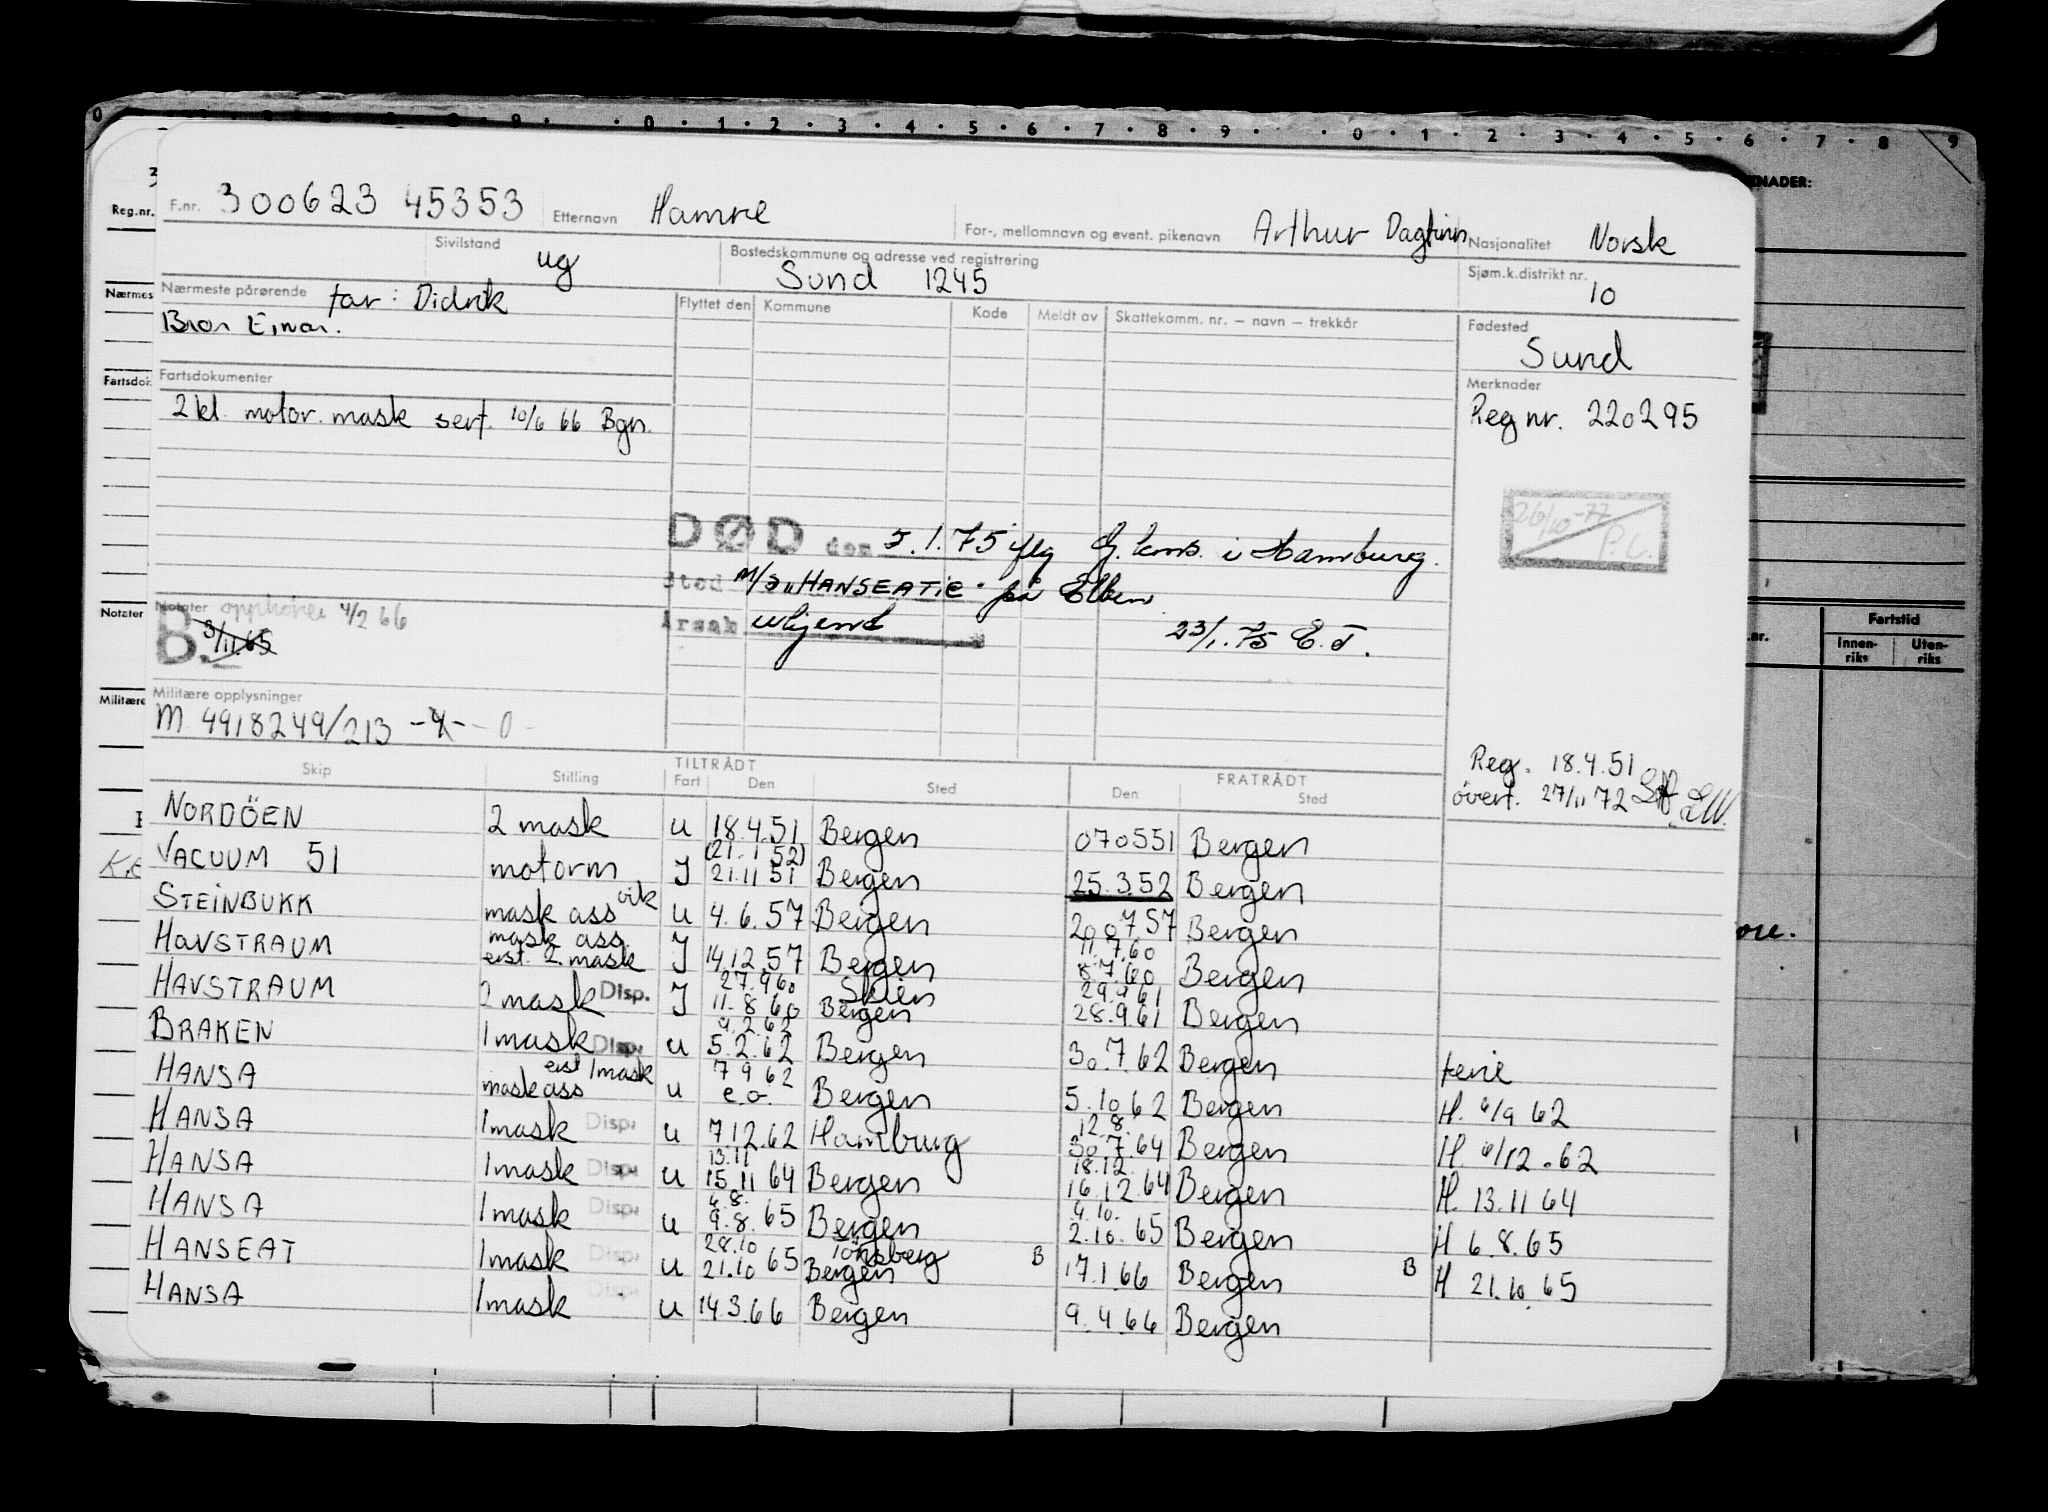 0 1 2 3 4 5 6 7 8 9 0 1 2 3 4 5 6 7 8 9
KNADER:
Reg.nr. F.nr. 300623 45353 Etternavn Hamre For-, mellomnavn og event. pikenavn Arthur Dagfinn Nasjonalitet Norsk
Sivilstand ug Bostedskommune og adresse ved registrering Sund 1245 Sjøm.k.distrikt nr. 10
Nærmes Nærmeste pårørende far: Didrik Flyttet den Kommune Kode Meldt av Skattekomm. nr. – navn – trekkår Fødested
Bror Einar. Sund
Fartsdok Fartsdokumenter Merknader
2 kl. motor. mask sert. 10/6 66 Bgn. Reg nr. 220295
26/10-77 P.C.
DØD den 5.1.75 iflg G. kons. i Hamburg.
Sted M/S "HANSEATIC" på Elben
Notater Notater opphører 4/2 66
Årsak ukjent 23/1.75 E.T.
B. 3/11.65
nr. Fartstid
Innenriks Utenriks
Militære Militære opplysninger
M 4918249/213 -4- -0-
Reg. 18.4.51
overf. 27/11 72
Skip Stilling TILTRÅDT Fart Den Sted FRATRÅDT Den Sted
NORDÖEN 2 mask u 18.4.51 Bergen 070551 Bergen
VACUUM 51 motorm J (21.1 52) 21.11 51 Bergen 25.3.52 Bergen
STEINBUKK mask ass vik u 4.6.57 Bergen 200757 Bergen
HAVSTRAUM mask ass. erst. 2. mask J 14.12.57 Bergen 11.7.60 8.7.60 Bergen
HAVSTRAUM 2 mask Disp. J 27.9.60 11.8.60 Skien Bergen 29.9.61 28.9.61 Bergen
BRAKEN 1 mask Disp. u 9.2.62 5.2.62 Bergen 30.7.62 Bergen ferie
HANSA mask ass erst 1mask u 7 9 62 e.o. Bergen 5.10 62 Bergen H. 6/9 62
HANSA 1mask Disp. u 7.12.62 Hamburg 12.8. 30.7.64 Bergen H. 6/12.62
HANSA 1mask Disp. u 13.11 15.11 64 Bergen 18.12. 16.12.64 Bergen H. 13.11 64
HANSA 1mask Disp. u 6.8. 9.8.65 Bergen 4.10. 2.10.65 Bergen H 6.8.65
HANSEAT 1mask Disp. u 28.10 21.10 65 Tönsberg Bergen B 17.1.66 Bergen B H 21.10.65
HANSA 1mask Disp. u 14.3.66 Bergen 9.4.66 Bergen